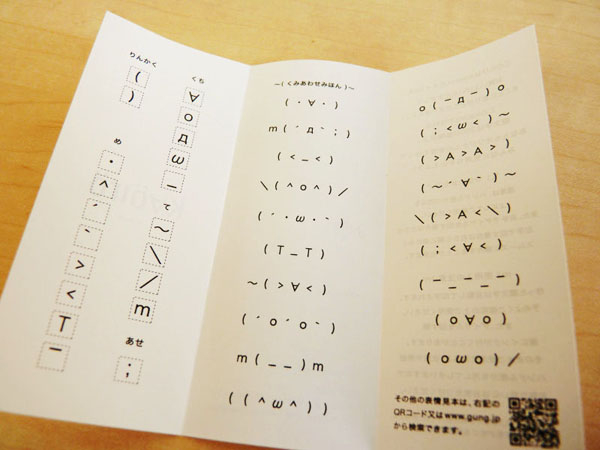 りんかく
(
)
め
・
^
´
`
>
<
T
¯
くち
∀
o
д
ω
_
て
~
\
/
m
あせ
;
~( くみあわせみほん )~
( ・ ∀ ・ )
m ( ´ д ` ; )
( < _ < )
\ ( ^ o ^ ) /
( ´ ・ ω ・ ` )
( T _ T )
~ ( > ∀ < )
( ´ o ´ o ` )
m ( _ _ ) m
( ( ^ ω ^ ) )
o ( ¯ д ¯ ) o
( ; < ω < ) ~
( > A > > )
( ~ ´ ∀ ` ) ~
\ ( > A < \ )
( ; < ∀ < )
( ¯ _ ¯ _ ¯ )
( o ∀ o )
( o ω o ) /
その他の表情見本は、右記の
QRコード又はwww.gung.jp
から検索できます。